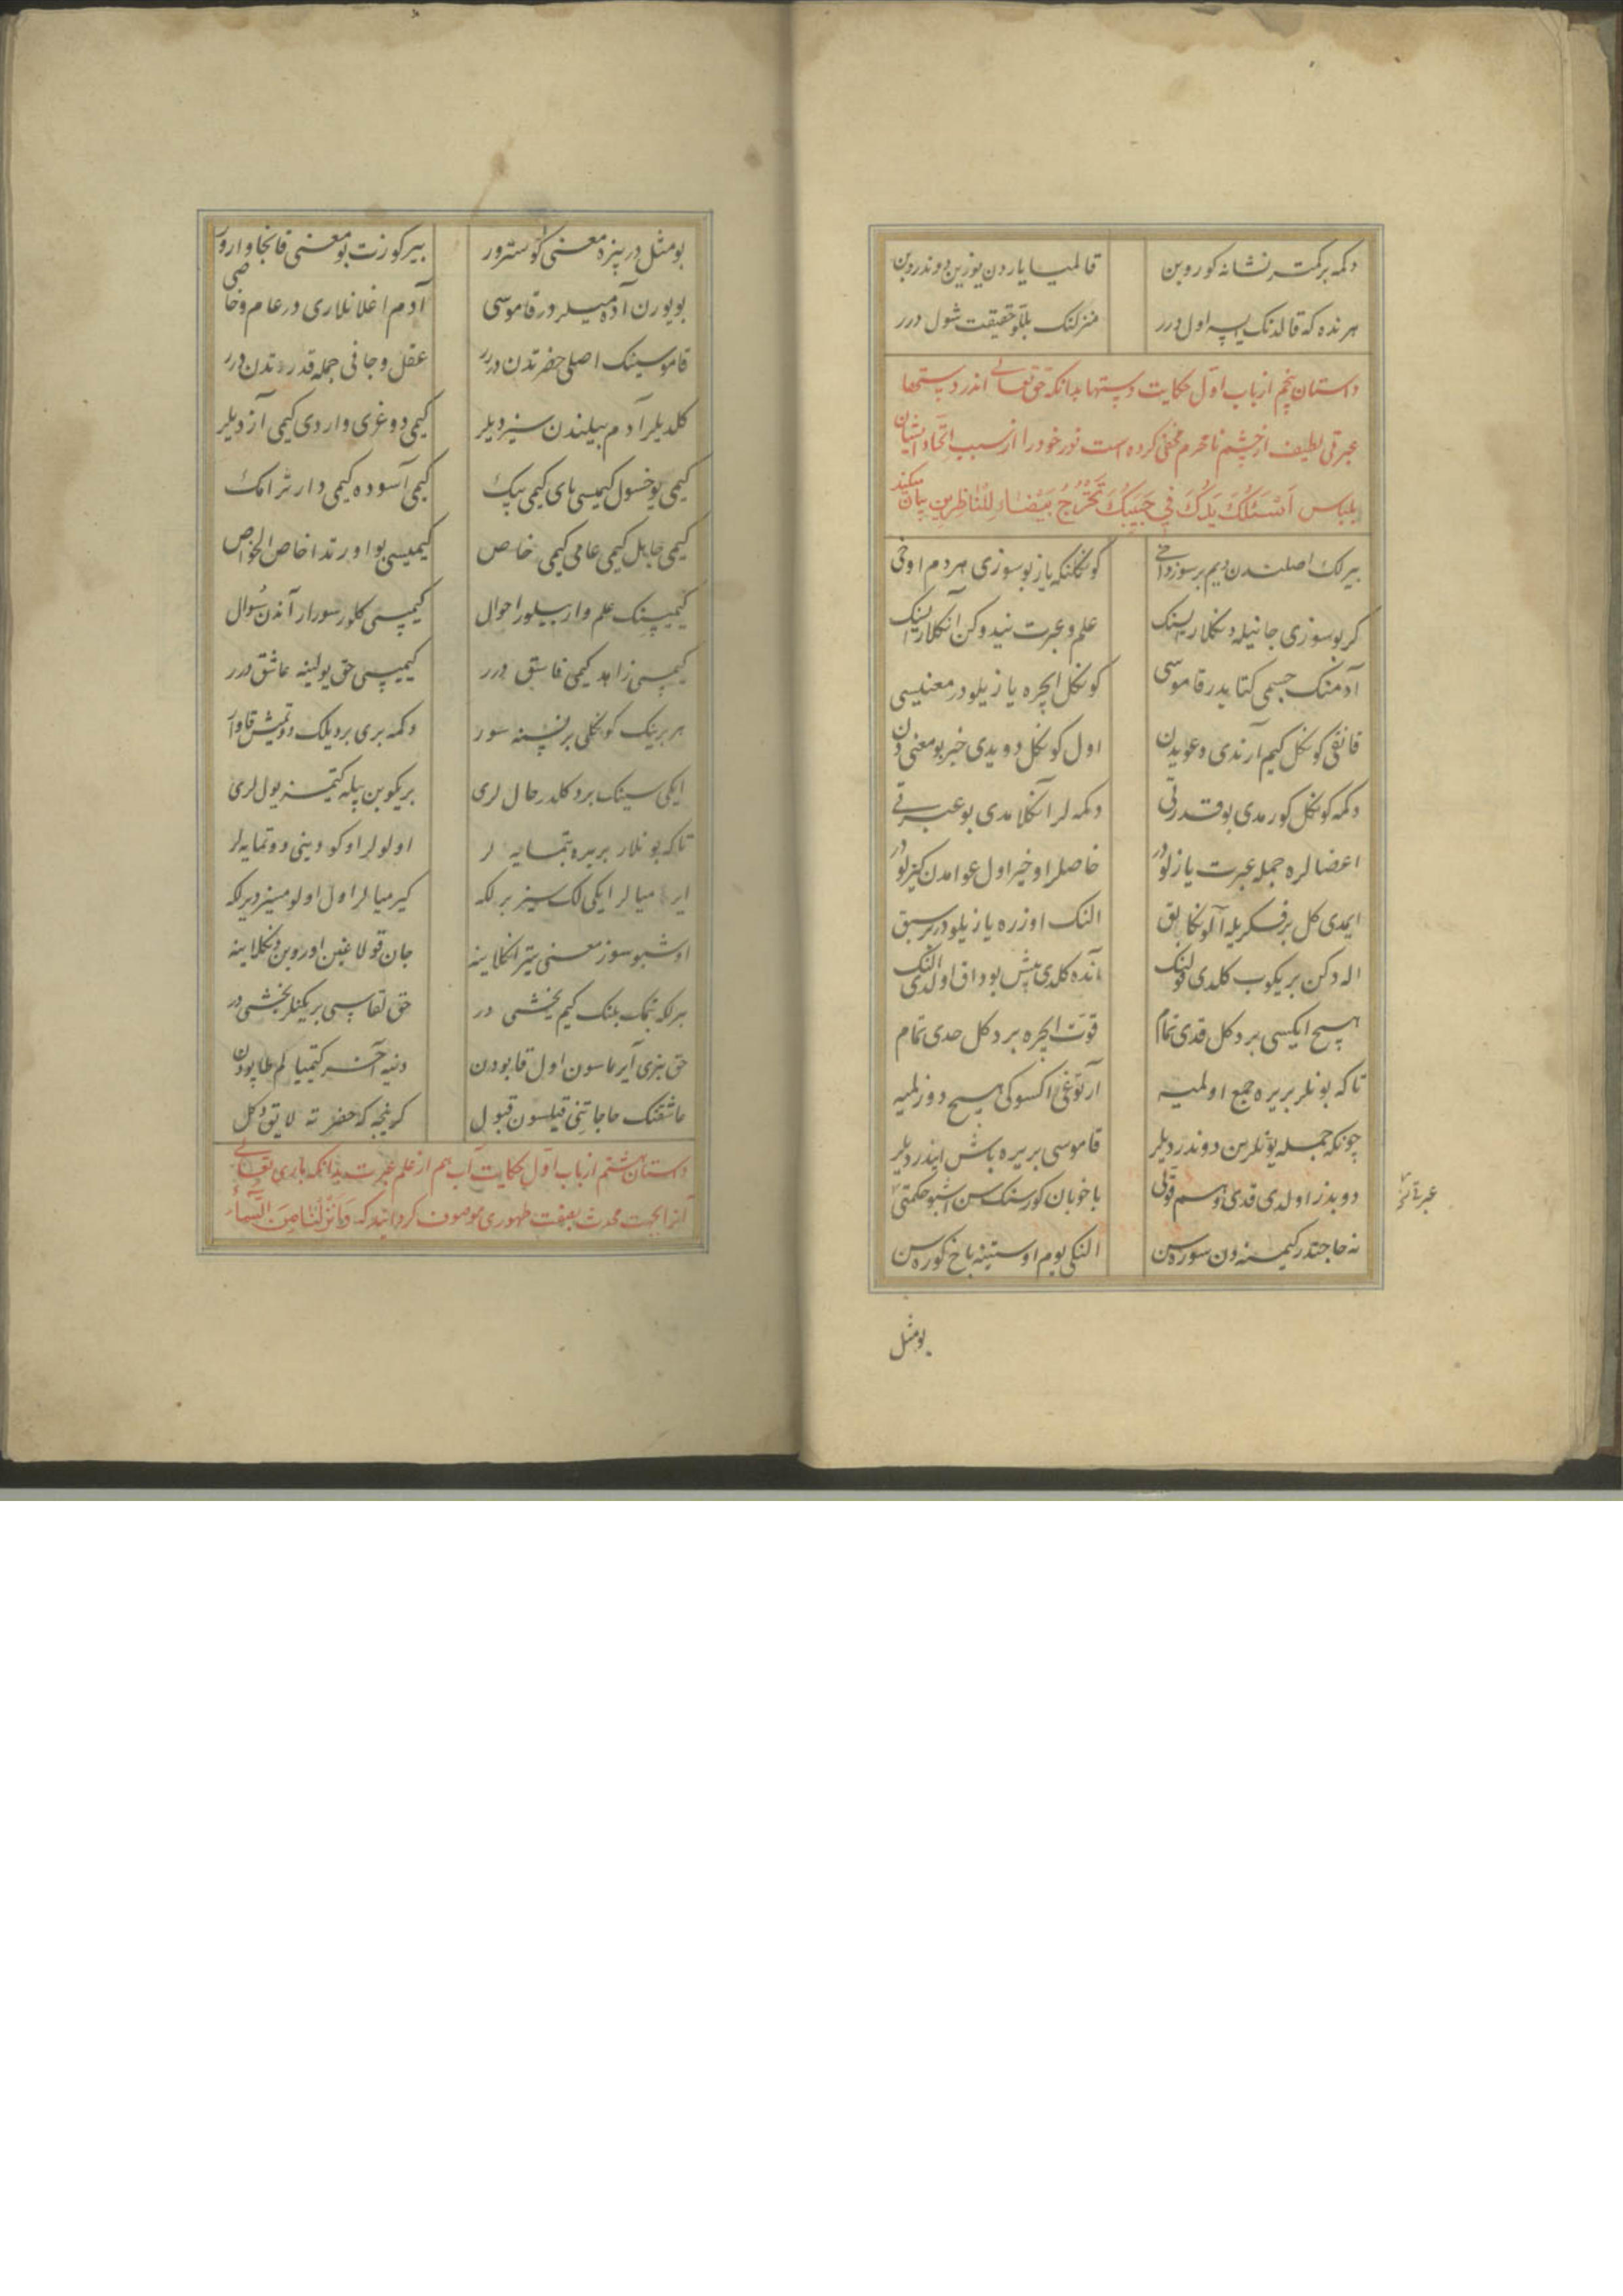 دکمه بر کمتر نشانه کوروبن قالمیا یاردن یوزین دوندروبن
هر نده که قالدنک ایسه اول درر منزلنک بللو حقیقت شول درر
داستان پنجم از باب اول حکایت دستها بدانکه حق تعالی اندر دستها
عبرتی لطیف از چشم نامحرم مخفی کرده است نور خود را از سبب اتحاد ایشان
بلباس اَسْئَلُکَ یَدَکَ فِی جَیْبِکَ تَخْرُجْ بَیْضَاءَ لِلنَّاظِرِین بیان میکند
بیرلک اصلندن دیم بر سوز داخی کونکلنکه یاز بو سوزی هر دم اوقی
کر بو سوزی جانیله دنکلار ایسنک علم و عبرت نیدوکن انکلار ایسنک
آدمنک جسمی کتابدر قاموسی کونکل ایچره یازیلودر معنیسی
قانقی کونکل کیم آرندی دعویدن اول کونکل دویدی خبر بو معنی دن
دکمه کونکل کورمدی بو قدرتی دکمه لر انکلامدی بو عبرتی
اعضالره جمله عبرت یازلودر خاصلر اوخیر اول عوامدن کیزلودر
ایمدی کل بر فکریله آلونکا بق النک اوزره یازیلودر سبق
اله دکن بریکوب کلدی قولنک آنده کلدی بیش بوداق اولدی النک
هیچ ایکیسی بر دکل قدی تمام قوت ایچره بر دکل حدی تمام
تاکه بونلر بریره جمع اولمیه آرتوغی اکسوکی هیچ دوزلمیه
چونکه جمله یوزلرین دوندردیلر قاموسی بریره باش ایندردیلر
دوبدز اولدی قدی و هم قولی باخوبان کورسنک سن اشبو حکمتی
عبرتی نخ
نه حاجتدر کیمسنه دن سوره سن النکی یوم اوستینه باخ کوره سن
بومثل
بو مثل در بیزه معنی کوسترور بیر کوزت بو معنی قانجا وارور
بویورن آدمیلردر قاموسی آدم اغلانلاری در عام و خاصی
قاموسینک اصلی حضرتدن درر عقل و جانی جمله قدرتدن درر
کلدیلر آدم بیلندن سیزدیلر کیمی دوغری واردی کیمی آزدیلر
کیمی یوخسول کیمیسی بای کیمی بیک کیمی آسوده کیمی دارتر امک
کیمی جاهل کیمی عامی کیمی خاص کیمیسی بو اورتدا خاص الخواص
کیمیسینک علم وار بیلور احوال کیمیسی کلور سورار آندن سُوال
کیمیسی زاهد کیمی فاسق درر کیمیسی حق یولینه عاشق درر
هر برینک کونکلی بر نسنه سور دکمه بری بر دیلک دوتمیش قاوار
ایکی سینک بر دکلدر حال لری بریکوبن بیله کیتمز یول لری
تاکه بونلار بریره یتمایه لر اولولر اوکودینی دوتمایه لر
ایرمیالر ایکی لک سیز برلکه کیرمیالر اول اولومسیز دیرلکه
اوشبو سوز معنی یتر انکلاینه جان قولاغین اوروبن دنکلاینه
برلکه یتمک بلنک کیم یخشی در حق لقاسی بریکنلر بخشی در
حق بیزی آیرماسون اول قابودن دنیه آخر کیتمیالم طاپودن
عاشقنک حاجاتنی قیلسون قبول کرنیجه که حضرته لایق دکل
داستان ششم از باب اول حکایت آب هم از علم عبرت بدانکه باری تعالی
آنرا بجهت محدث بصفت طهوری موصوف کردانید که وَاَنْزَلْنَا مِنَ السَّمَاءِ